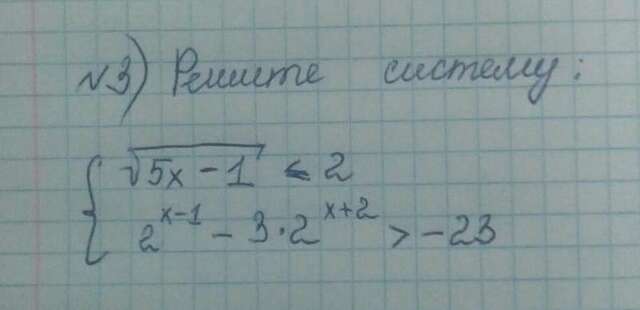 №3) Решите систему:
{ √(5x - 1) < 2
2^(x-1) - 3·2^(x+2) > -23